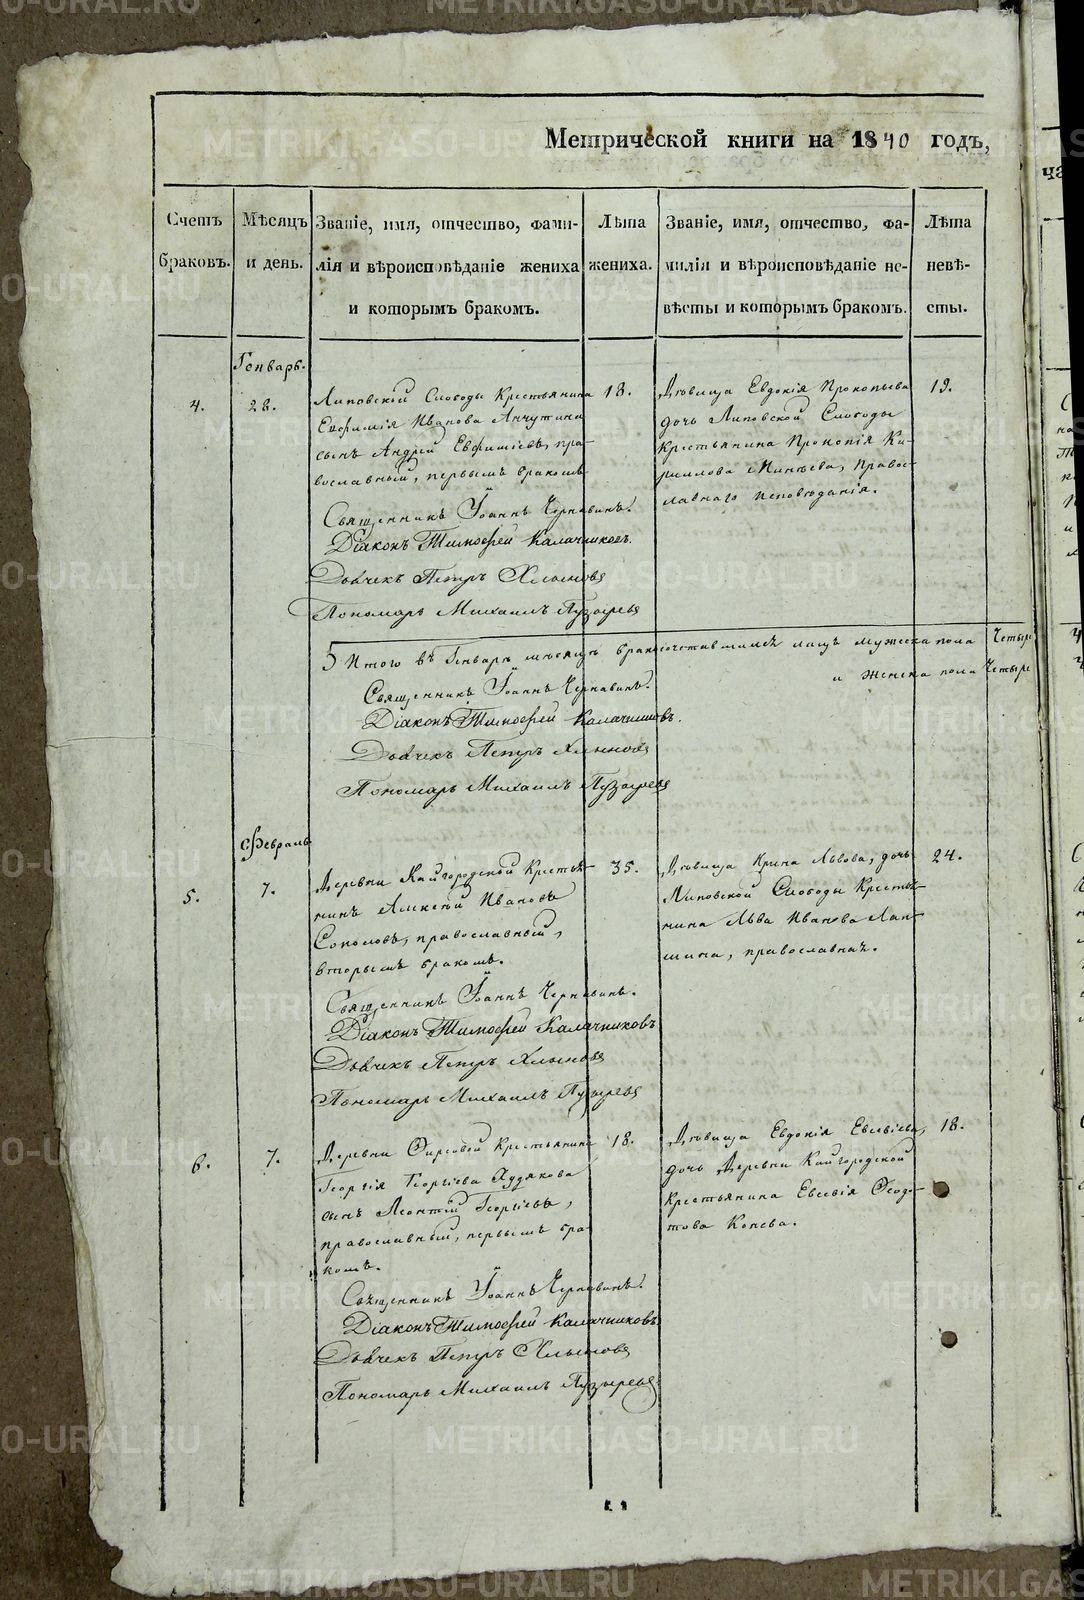 Метрической книги на 1840 годъ,
Счетъ браковъ.
Мѣсяцъ и день.
Званіе, имя, отчество, фами-
лія и вѣроисповѣданіе жениха
и которымъ бракомъ.
Лѣта жениха.
Званіе, имя, отчество, фа-
милія и вѣроисповѣданіе не-
вѣсты и которымъ бракомъ.
Лѣта невѣ-
сты.
Генварь.
4.
28.
Липовской Слободы Крестьянина
Евфимія Иванова Анчутина
сынъ Андрей Евфиміевъ, пра-
вославный, первымъ бракомъ
18.
Дѣвица Евдокія Прокопьева
дочь Липовской Слободы
Крестьянина Прокопія Ки-
риллова Минѣева, Правос-
лавнаго исповѣданія.
19.
Священникъ Іоаннъ Чернавинъ.
Діаконъ Тимоѳей Калачниковъ.
Дьячекъ Петръ Хлыновъ
Пономарь Михаилъ Пузыревъ
Итого въ Генварѣ мѣсяцѣ бракосочетавшихся лицъ мужеска пола Четыре
и женска пола Четыре
Священникъ Іоаннъ Чернавинъ.
Діаконъ Тимоѳей Калачниковъ.
Дьячекъ Петръ Хлыновъ
Пономарь Михаилъ Пузыревъ
Февраль
5.
7.
Деревни Кайгородской Крестья-
нинъ Алексѣй Ивановъ
Соколовъ, православный,
вторымъ бракомъ.
35.
Дѣвица Ирина Львова, дочь
Липовской Слободы Крестья-
нина Льва Иванова Лап-
шина, православная.
24.
Священникъ Іоаннъ Чернавинъ.
Діаконъ Тимоѳей Калачниковъ
Дьячекъ Петръ Хлыновъ
Пономарь Михаилъ Пузыревъ
6.
7.
Деревни Фирсовой Крестьянина
Георгія Георгіева Худякова
сынъ Леонтій Георгіевъ,
православный, первымъ бра-
комъ.
18.
Дѣвица Евдокія Евсевіева,
дочь Деревни Кайгородской
Крестьянина Евсевія Ѳеодо-
това Конева.
18.
Священникъ Іоаннъ Чернавинъ.
Діаконъ Тимоѳей Калачниковъ
Дьячекъ Петръ Хлыновъ
Пономарь Михаилъ Пузыревъ
METRIKI.GASO-URAL.RU